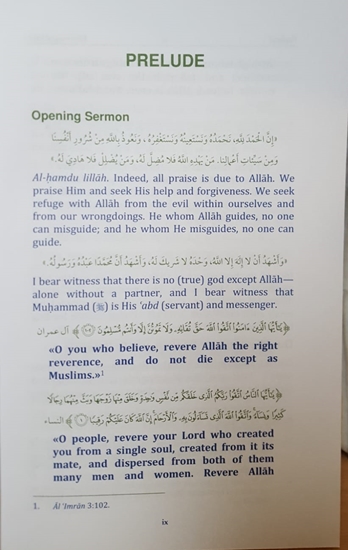 PRELUDE
Opening Sermon
«إِنَّ الْحَمْدَ لِلَّهِ، نَحْمَدُهُ وَنَسْتَعِينُهُ وَنَسْتَغْفِرُهُ، وَنَعُوذُ بِاللَّهِ مِنْ شُرُورِ أَنْفُسِنَا
وَمِنْ سَيِّئَاتِ أَعْمَالِنَا. مَنْ يَهْدِهِ اللَّهُ فَلَا مُضِلَّ لَهُ، وَمَنْ يُضْلِلْ فَلَا هَادِيَ لَهُ.»
Al-ḥamdu lillāh. Indeed, all praise is due to Allāh. We
praise Him and seek His help and forgiveness. We seek
refuge with Allāh from the evil within ourselves and
from our wrongdoings. He whom Allāh guides, no one
can misguide; and he whom He misguides, no one can
guide.
«وَأَشْهَدُ أَنْ لَا إِلَهَ إِلَّا اللَّهُ، وَحْدَهُ لَا شَرِيكَ لَهُ، وَأَشْهَدُ أَنَّ مُحَمَّدًا عَبْدُهُ وَرَسُولُهُ.»
I bear witness that there is no (true) god except Allāh—
alone without a partner, and I bear witness that
Muḥammad (ﷺ) is His ‘abd (servant) and messenger.
﴿يَا أَيُّهَا الَّذِينَ ءَامَنُوا اتَّقُوا اللَّهَ حَقَّ تُقَاتِهِ وَلَا تَمُوتُنَّ إِلَّا وَأَنْتُمْ مُسْلِمُونَ ١٠٢﴾ آل عمران
«O you who believe, revere Allāh the right
reverence, and do not die except as
Muslims.»1
﴿يَا أَيُّهَا النَّاسُ اتَّقُوا رَبَّكُمُ الَّذِي خَلَقَكُمْ مِنْ نَفْسٍ وَاحِدَةٍ وَخَلَقَ مِنْهَا زَوْجَهَا وَبَثَّ مِنْهُمَا رِجَالًا
كَثِيرًا وَنِسَاءً وَاتَّقُوا اللَّهَ الَّذِي تَسَاءَلُونَ بِهِ وَالْأَرْحَامَ إِنَّ اللَّهَ كَانَ عَلَيْكُمْ رَقِيبًا ١﴾ النساء
«O people, revere your Lord who created
you from a single soul, created from it its
mate, and dispersed from both of them
many men and women. Revere Allāh
1. Āl ‘Imrān 3:102.
ix